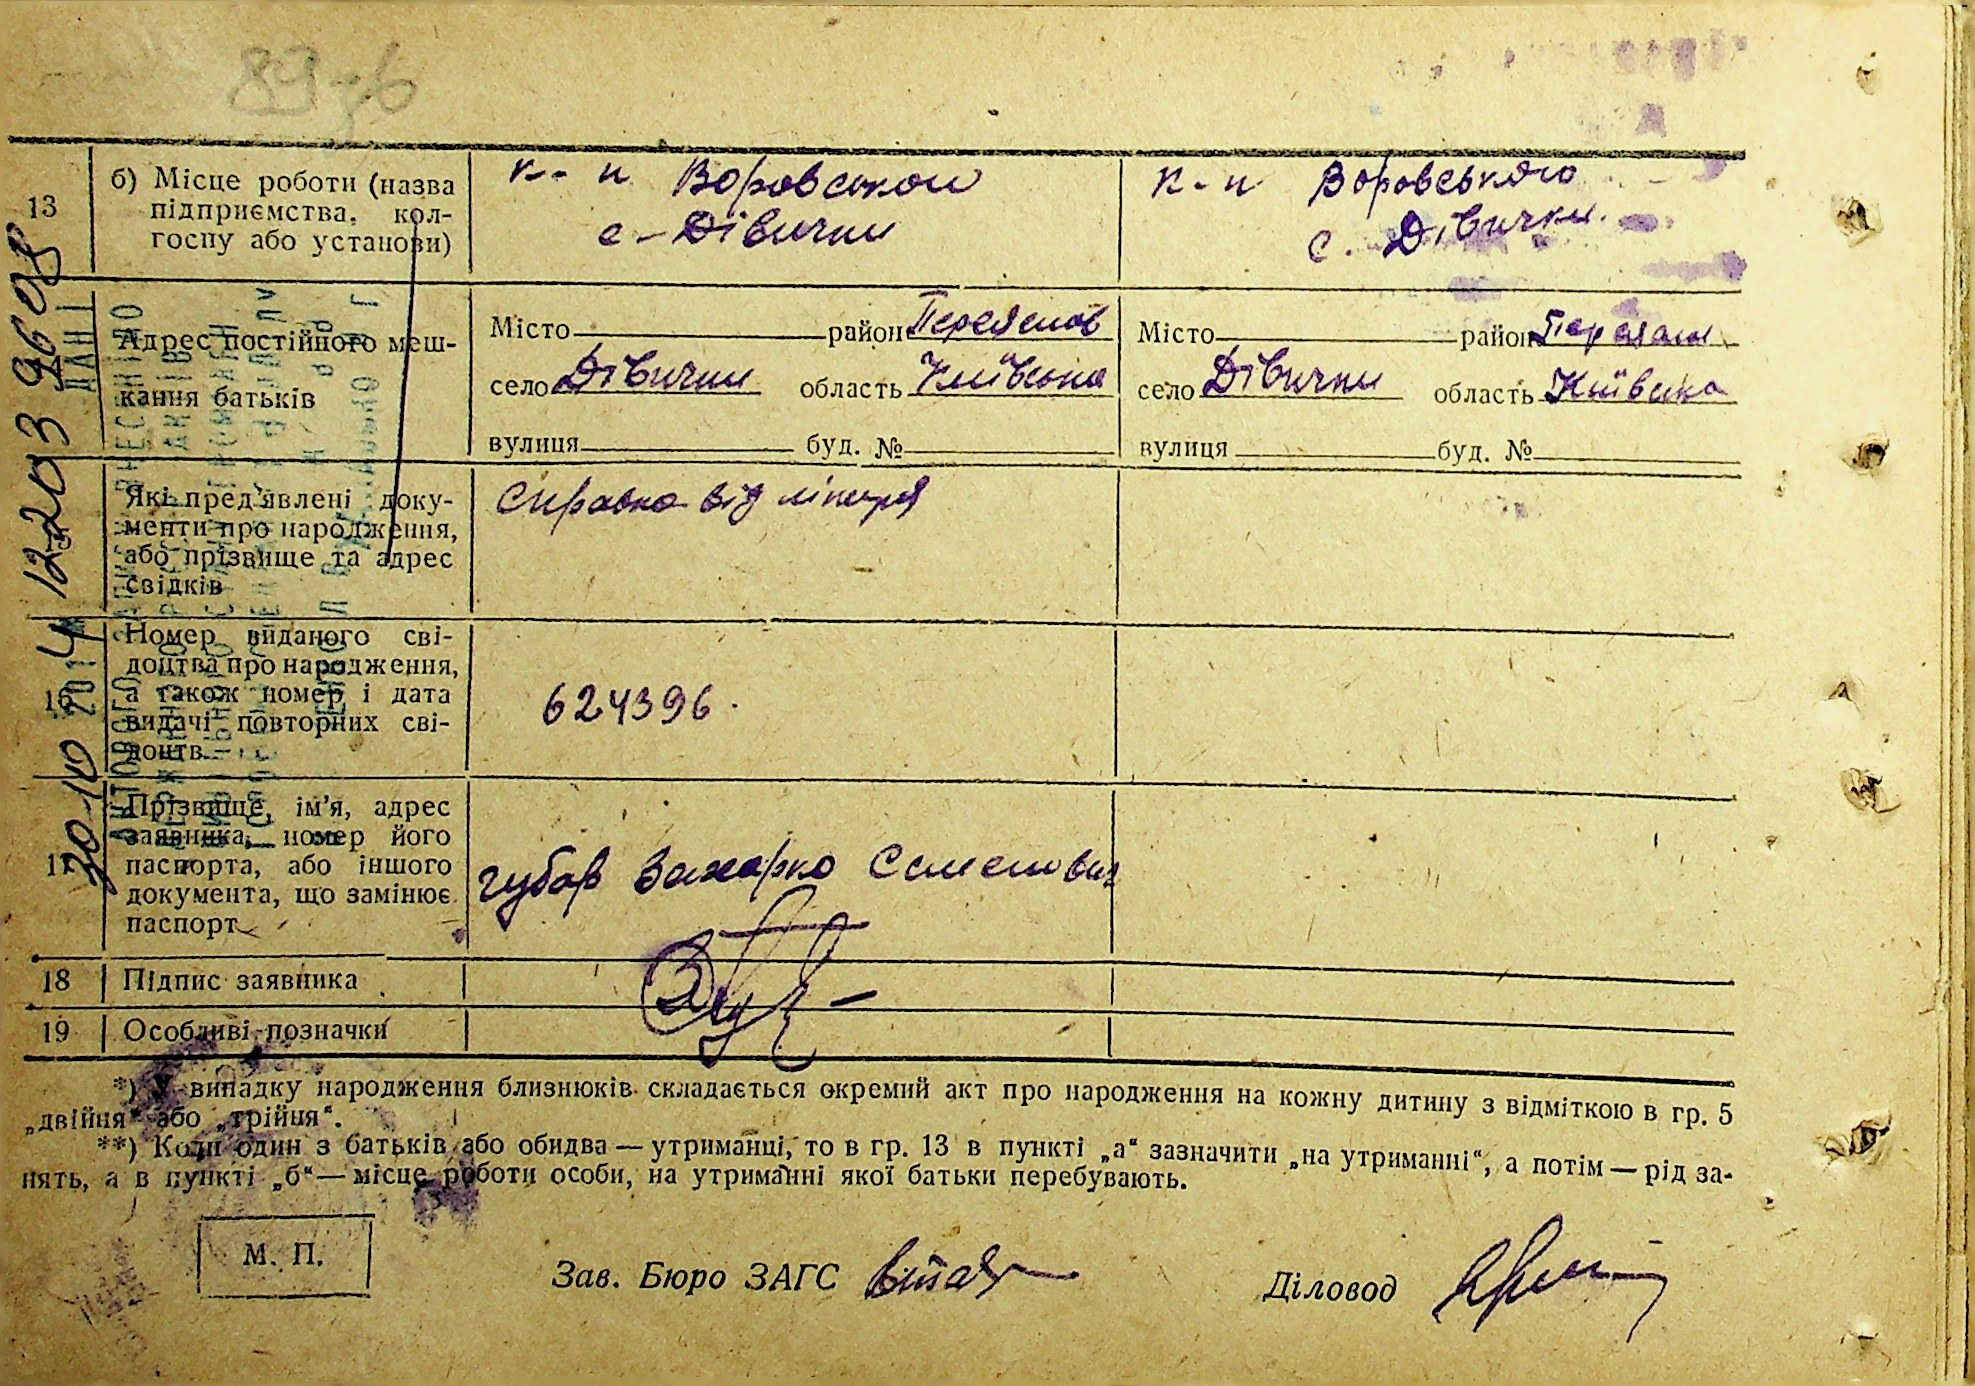 89
13
б) Місце роботи (назва
підприємства, кол-
госпу або установи)
к-п Воровськои
с-Дівички
к-п Воровського
с. Дівички.
Адрес постійного меш-
кання батьків
Місто район Переяслов
село Дівички область Київська
вулиця буд. №
Місто район Переясл
село Дівички область Київська
вулиця буд. №
Які пред'явлені доку-
менти про народження,
або прізвище та адрес
свідків
Справка від лікаря
16
Номер виданого сві-
доцтва про народження,
а також номер і дата
видачі повторних сві-
доцтв
624396.
17
Прізвище, ім'я, адрес
заявника, номер його
паспорта, або іншого
документа, що замінює
паспорт
Губар Захарко Семенович
18
Підпис заявника
19
Особливі позначки
*) У випадку народження близнюків складається окремий акт про народження на кожну дитину з відміткою в гр. 5
„двійня“ або „трійня“.
**) Коли один з батьків або обидва — утриманці, то в гр. 13 в пункті „а“ зазначити „на утриманні“, а потім — рід за-
нять, а в пункті „б“ — місце роботи особи, на утриманні якої батьки перебувають.
М. П.
Зав. Бюро ЗАГС
Діловод